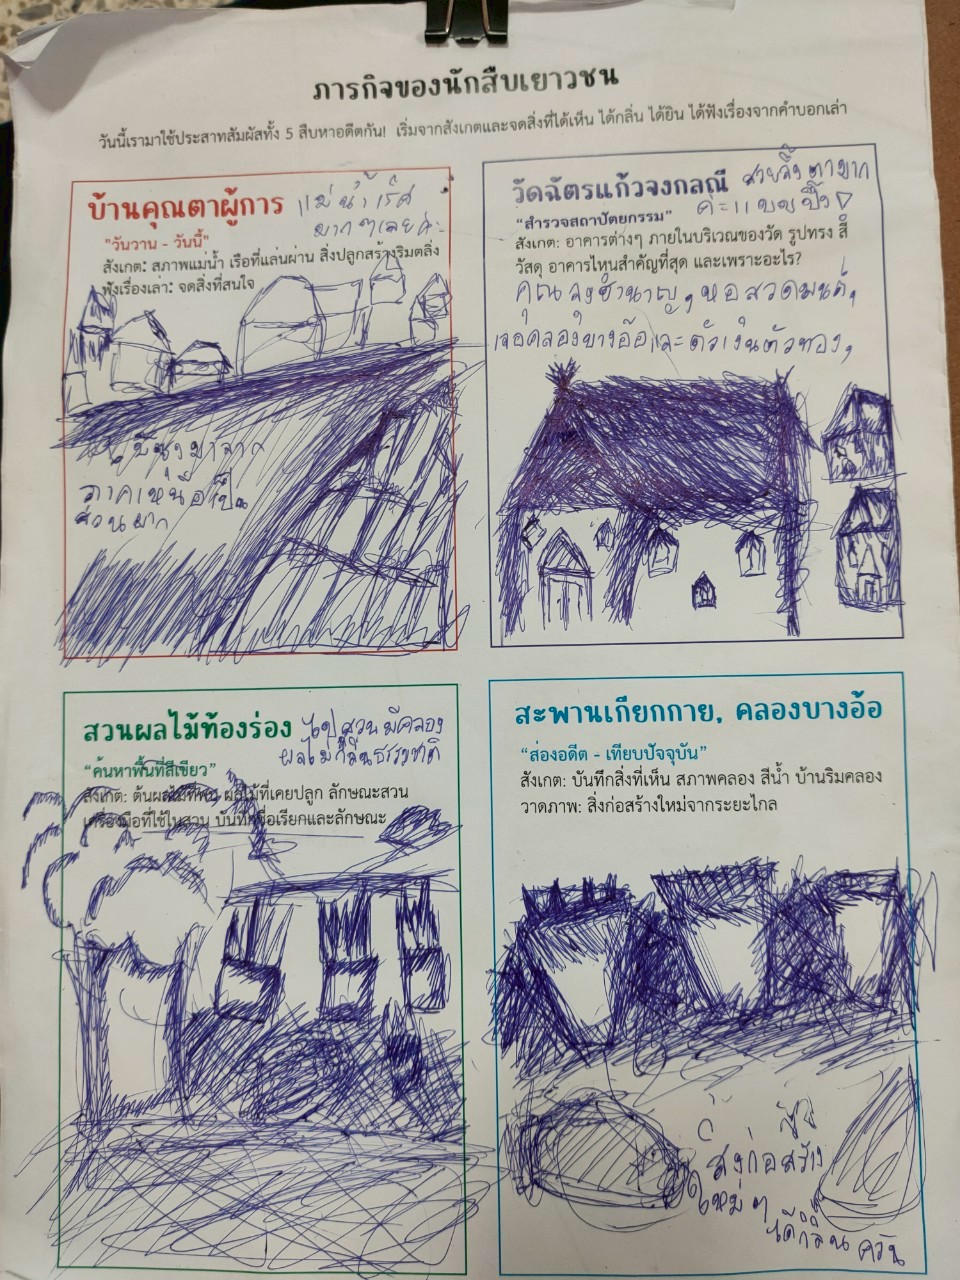 ภารกิจของนักสืบเยาวชน
วันนี้เรามาใช้ประสาทสัมผัสทั้ง 5 สืบหาอดีตกัน! เริ่มจากสังเกตและจดสิ่งที่ได้เห็น ได้กลิ่น ได้ยิน ได้ฟังเรื่องจากคำบอกเล่า
บ้านคุณตาผู้การ
แม่น้ำเร็ว
มากๆเลยค่ะ
"วันวาน - วันนี้"
สังเกต: สภาพแม่น้ำ เรือที่แล่นผ่าน สิ่งปลูกสร้างริมตลิ่ง
ฟังเรื่องเล่า: จดสิ่งที่สนใจ
มาจาก
ภาคเหนือเป็น
ส่วนมาก
วัดฉัตรแก้วจงกลณี
สวยจึ้งตามาก
"สำรวจสถาปัตยกรรม"
สังเกต: อาคารต่างๆ ภายในบริเวณของวัด รูปทรง สี
วัสดุ อาคารไหนสำคัญที่สุด และเพราะอะไร?
คุณลุงชำนาญ, หอสวดมนต์,
เจอคลองบางอ้อและตัวเงินตัวทอง,
สวนผลไม้ท้องร่อง
ไปสวนมีคลอง
ผลไม้กลิ่นธรรมชาติ
"ค้นหาพื้นที่สีเขียว"
สังเกต: ต้นผลไม้ที่พบ ผลไม้ที่เคยปลูก ลักษณะสวน
เครื่องมือที่ใช้ในสวน บันทึกชื่อเรียกและลักษณะ
สะพานเกียกกาย, คลองบางอ้อ
"ส่องอดีต - เทียบปัจจุบัน"
สังเกต: บันทึกสิ่งที่เห็น สภาพคลอง สีน้ำ บ้านริมคลอง
วาดภาพ: สิ่งก่อสร้างใหม่จากระยะไกล
สิ่งก่อสร้าง
ใหม่ๆ
ได้กลิ่น ควัน